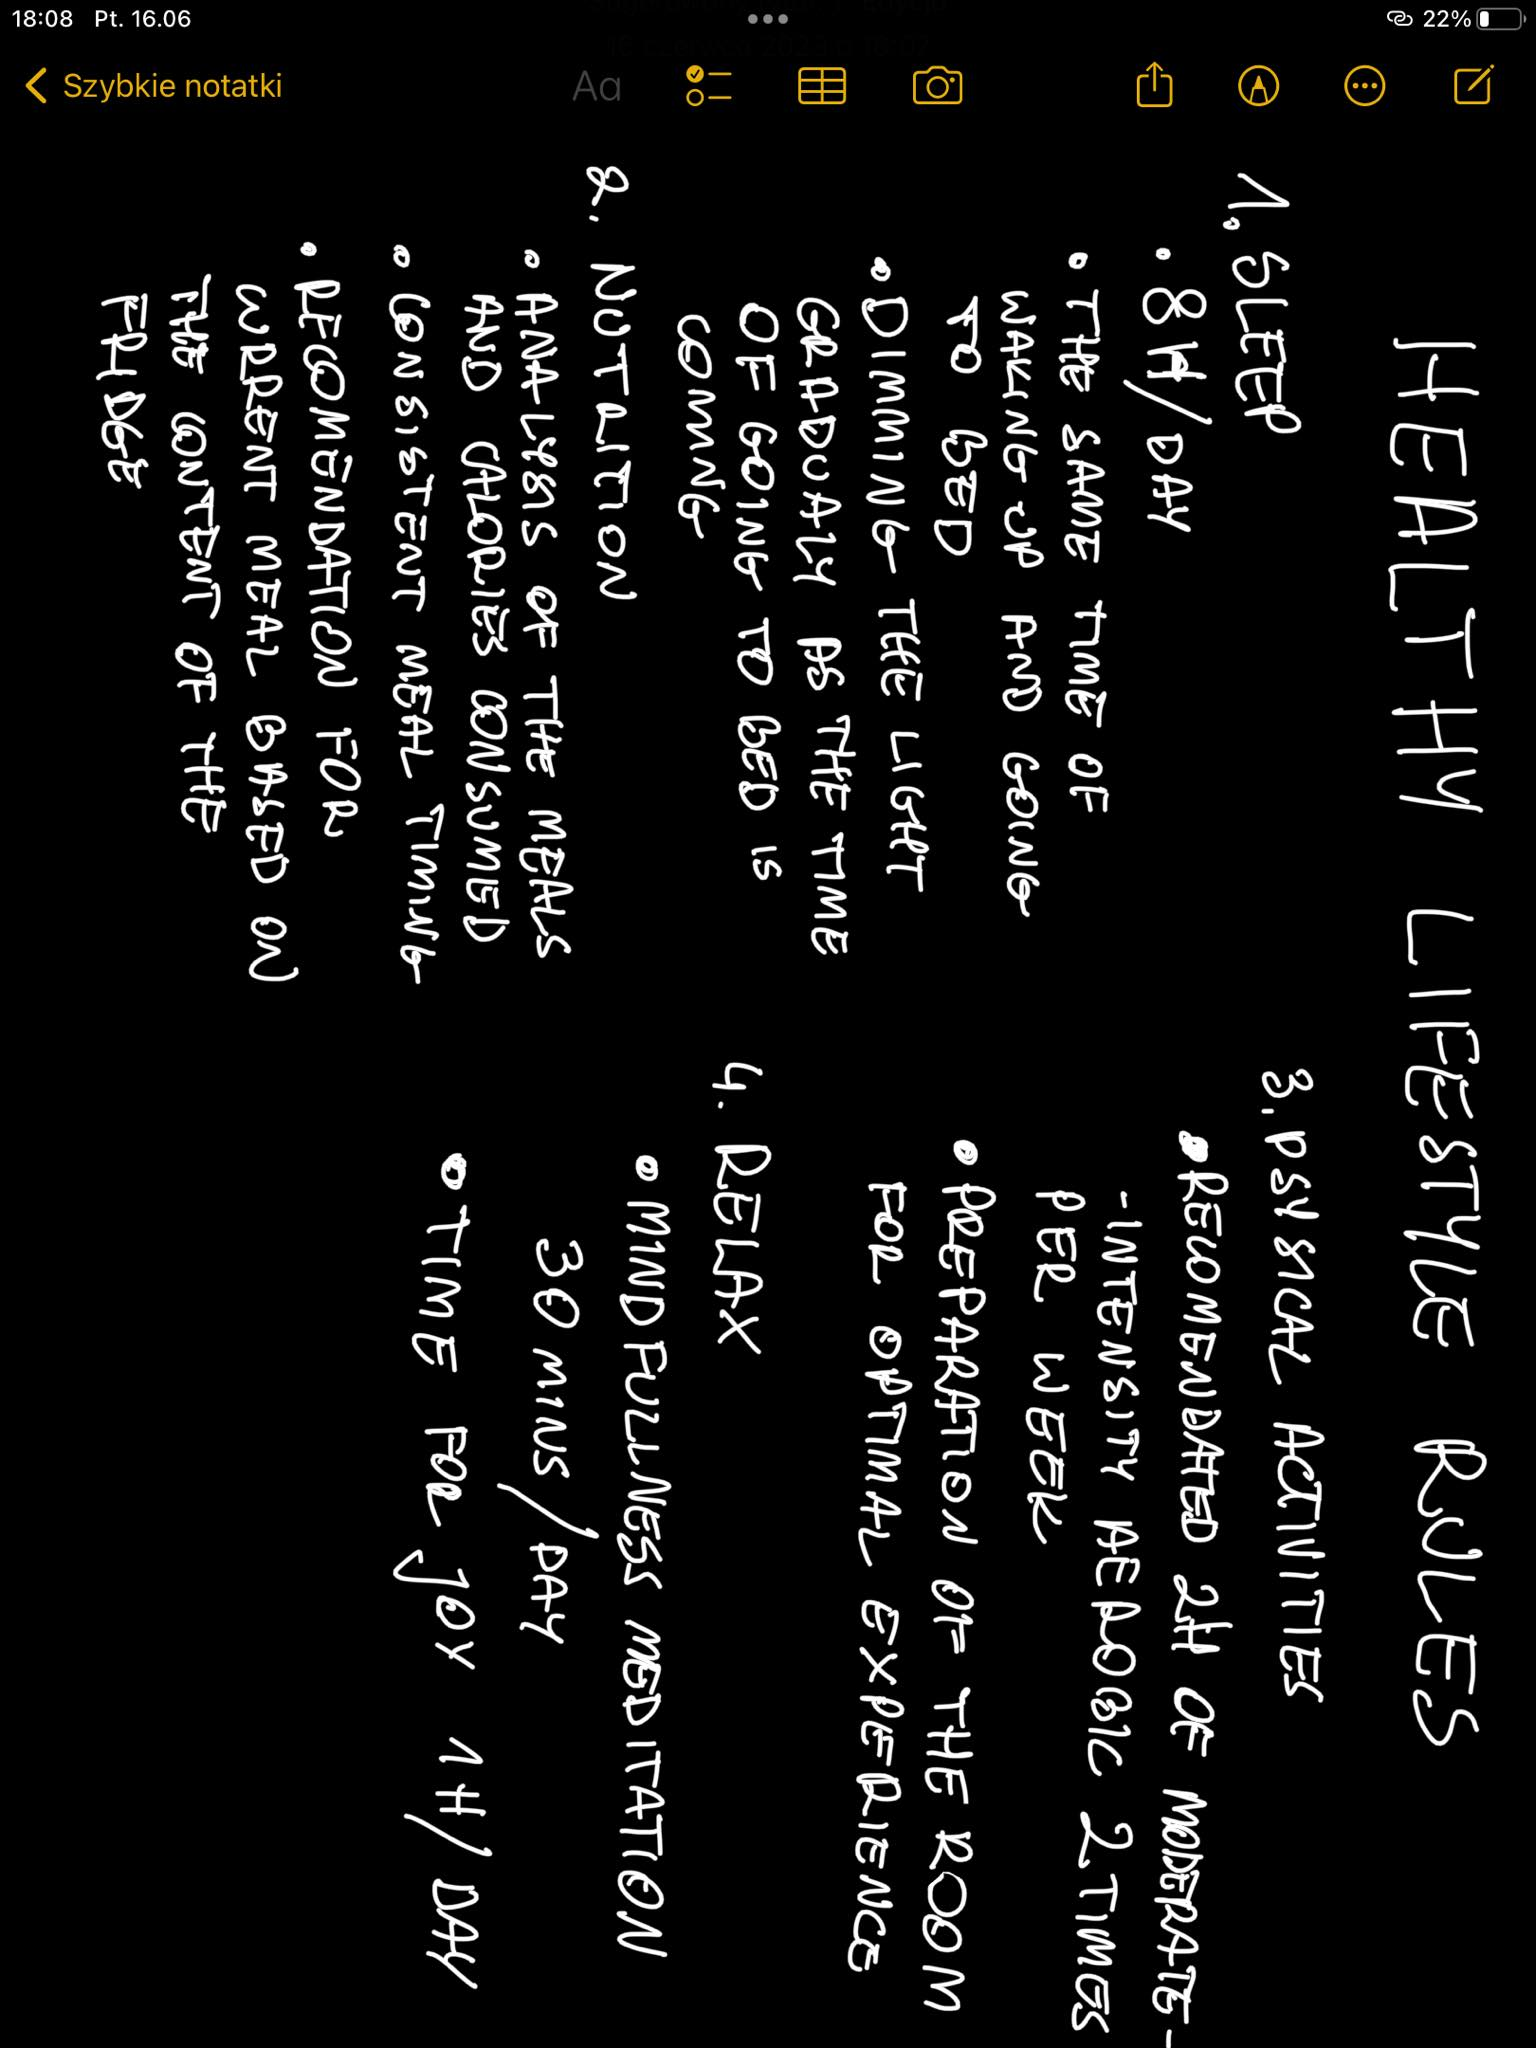 18:08 Pt. 16.06
22%
Szybkie notatki
Aa
HEALTHY LIFESTYLE RULES
1. SLEEP
• 8H/DAY
• THE SAME TIME OF
WAKING UP AND GOING
TO BED
• DIMMING THE LIGHT
GRADUALY AS THE TIME
OF GOING TO BED IS
COMING
2. NUTRITION
• ANALYSIS OF THE MEALS
AND CALORIES CONSUMED
• CONSISTENT MEAL TIMING
• RECOMENDATION FOR
CURRENT MEAL BASED ON
THE CONTENT OF THE
FRIDGE
3. PSYSICAL ACTIVITIES
• RECOMENDATED 2H OF MODERATE-
-INTENSITY AEROBIC 2 TIMES
PER WEEK
• PREPARATION OF THE ROOM
FOR OPTIMAL EXPERIENCE
4. RELAX
• MINDFULLNESS MEDITATION
30 MINS/DAY
• TIME FOR JOY 1H/DAY